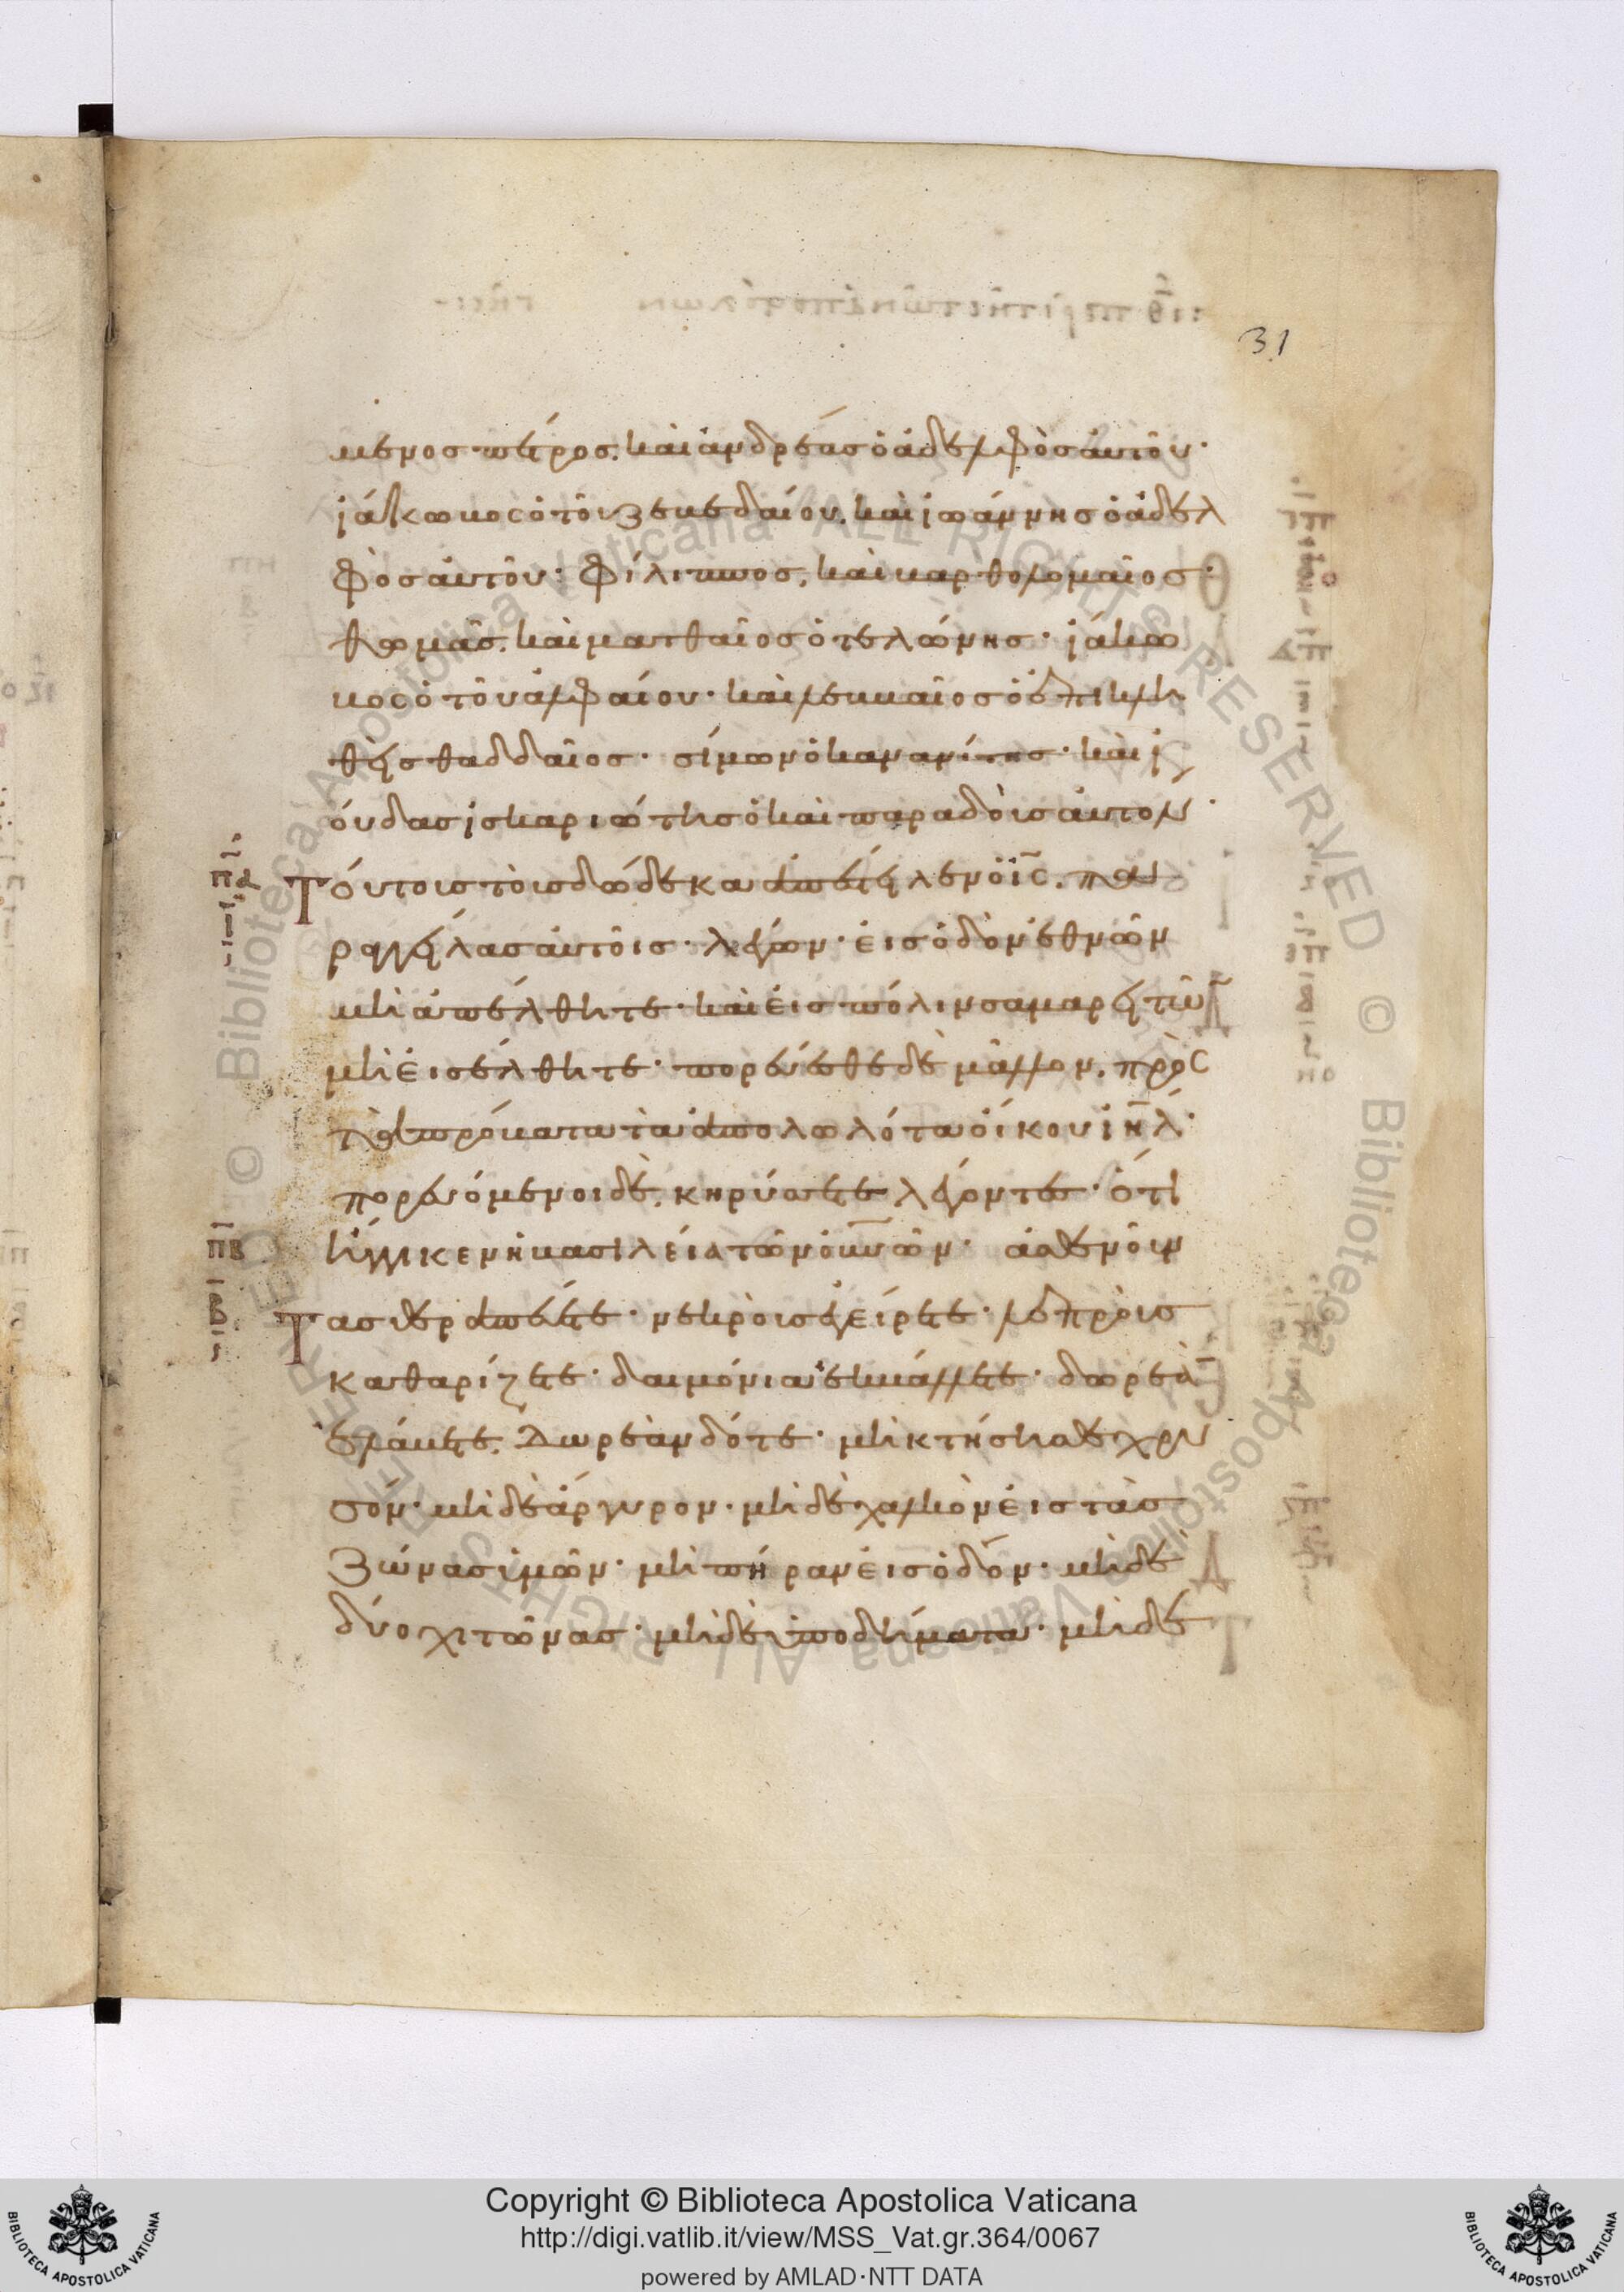 31
μενος πέτρος. καὶ ἀνδρέας ὁ ἀδελφὸς ἀυτοῦ·
ἰάκωβος ὁ τοῦ ζεβεδαίου. καὶ ἰωάννης ὁ ἀδελ
φὸς ἀυτοῦ· φίλιππος, καὶ βαρθολομαῖος·
θωμᾶς. καὶ ματθαῖος ὁ τελώνης· ἰάκω
βος ὁ τοῦ ἀλφαίου· καὶ λεββαῖος ὁ ἐπικλη
θεὶς θαδδαῖος· σίμων ὁ κανανίτης· καὶ ἰ
ούδας ἰσκαριώτης ὁ καὶ παραδοὺς ἀυτὸν·
πα
ι
Τούτους τοὺς δώδεκα ἀπέστειλεν ὁ ις. πα
ραγγείλας ἀυτοῖς· λέγων· εἰς ὁδὸν ἐθνῶν
μὴ ἀπέλθητε· καὶ εἰς πόλιν σαμαρειτῶ
μὴ εἰσέλθητε· πορεύεσθε δὲ μᾶλλον. πρὸς
τὰ πρόβατα τὰ ἀπολωλότα οἴκου ιηλ·
πορευόμενοι δὲ, κηρύσσετε λέγοντες· ὅτι
πβ
β
ἤγγικεν ἡ βασιλεία τῶν οὐνῶν· ἀσθενοῦν
Τας θεραπεύετε· νεκροὺς ἐγείρετε· λεπροὺς
καθαρίζετε· δαιμόνια ἐκβάλλετε· δωρεὰ
ἐλάβετε. Δωρεὰν δότε· μὴ κτήσησθε χρυ
σόν· μηδὲ ἄργυρον· μηδὲ χαλκὸν εἰς τὰς
ζώνας ὑμῶν· μὴ πήραν εἰς ὁδόν· μηδὲ
δύο χιτῶνας· μηδὲ ὑποδήματα· μηδὲ
© Biblioteca Apostolica Vaticana ALL RIGHTS RESERVED
Copyright © Biblioteca Apostolica Vaticana
http://digi.vatlib.it/view/MSS_Vat.gr.364/0067
powered by AMLAD·NTT DATA
BIBLIOTECA APOSTOLICA VATICANA
BIBLIOTECA APOSTOLICA VATICANA